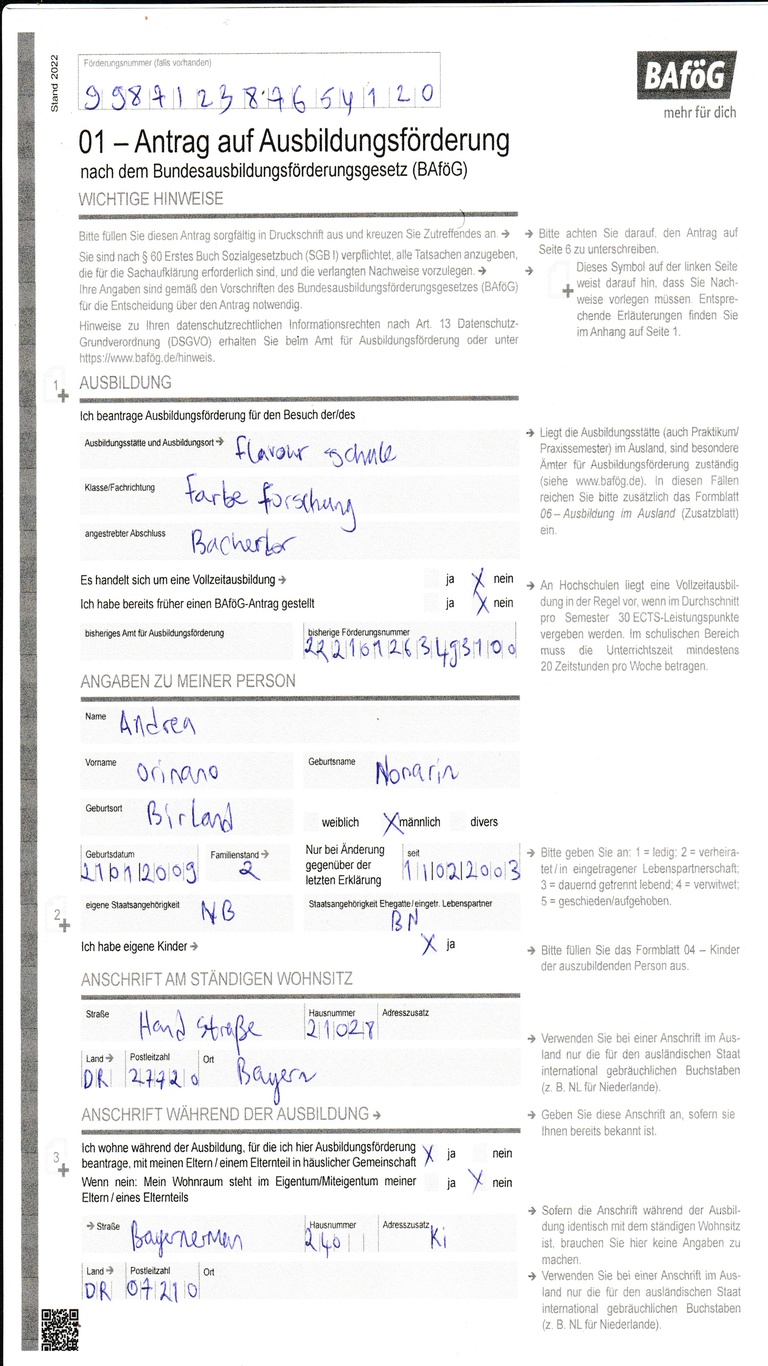 Stand 2022
Förderungsnummer (falls vorhanden)
998712387654120
BAföG
mehr für dich
01 – Antrag auf Ausbildungsförderung
nach dem Bundesausbildungsförderungsgesetz (BAföG)
WICHTIGE HINWEISE
Bitte füllen Sie diesen Antrag sorgfältig in Druckschrift aus und kreuzen Sie Zutreffendes an. →
Sie sind nach § 60 Erstes Buch Sozialgesetzbuch (SGB I) verpflichtet, alle Tatsachen anzugeben,
die für die Sachaufklärung erforderlich sind, und die verlangten Nachweise vorzulegen. →
Ihre Angaben sind gemäß den Vorschriften des Bundesausbildungsförderungsgesetzes (BAföG)
für die Entscheidung über den Antrag notwendig.
Hinweise zu Ihren datenschutzrechtlichen Informationsrechten nach Art. 13 Datenschutz-
Grundverordnung (DSGVO) erhalten Sie beim Amt für Ausbildungsförderung oder unter
https://www.bafög.de/hinweis.
→ Bitte achten Sie darauf, den Antrag auf
Seite 6 zu unterschreiben.
→ Dieses Symbol auf der linken Seite
weist darauf hin, dass Sie Nach-
weise vorlegen müssen. Entspre-
chende Erläuterungen finden Sie
im Anhang auf Seite 1.
1 AUSBILDUNG
Ich beantrage Ausbildungsförderung für den Besuch der/des
Ausbildungsstätte und Ausbildungsort → flavour schule
Klasse/Fachrichtung farbe forschung
angestrebter Abschluss Bacherlor
→ Liegt die Ausbildungsstätte (auch Praktikum/
Praxissemester) im Ausland, sind besondere
Ämter für Ausbildungsförderung zuständig
(siehe www.bafög.de). In diesen Fällen
reichen Sie bitte zusätzlich das Formblatt
06 – Ausbildung im Ausland (Zusatzblatt)
ein.
Es handelt sich um eine Vollzeitausbildung → ja X nein
Ich habe bereits früher einen BAföG-Antrag gestellt ja X nein
bisheriges Amt für Ausbildungsförderung bisherige Förderungsnummer
→ An Hochschulen liegt eine Vollzeitausbil-
dung in der Regel vor, wenn im Durchschnitt
pro Semester 30 ECTS-Leistungspunkte
vergeben werden. Im schulischen Bereich
muss die Unterrichtszeit mindestens
20 Zeitstunden pro Woche betragen.
ANGABEN ZU MEINER PERSON
Name Andrea
Vorname Orinano Geburtsname Nonarin
Geburtsort Birland weiblich X männlich divers
Geburtsdatum 21012009 Familienstand → 2
Nur bei Änderung
gegenüber der
letzten Erklärung
seit 11022003
→ Bitte geben Sie an: 1 = ledig; 2 = verheira-
tet / in eingetragener Lebenspartnerschaft;
3 = dauernd getrennt lebend; 4 = verwitwet;
5 = geschieden/aufgehoben.
2 eigene Staatsangehörigkeit NB Staatsangehörigkeit Ehegatte/eingetr. Lebenspartner BN
Ich habe eigene Kinder → X ja
→ Bitte füllen Sie das Formblatt 04 – Kinder
der auszubildenden Person aus.
ANSCHRIFT AM STÄNDIGEN WOHNSITZ
Straße Hand Straße Hausnummer 21028 Adresszusatz
Land → DR Postleitzahl 27720 Ort Bayern
→ Verwenden Sie bei einer Anschrift im Aus-
land nur die für den ausländischen Staat
international gebräuchlichen Buchstaben
(z. B. NL für Niederlande).
ANSCHRIFT WÄHREND DER AUSBILDUNG →
→ Geben Sie diese Anschrift an, sofern sie
Ihnen bereits bekannt ist.
3 Ich wohne während der Ausbildung, für die ich hier Ausbildungsförderung
beantrage, mit meinen Eltern / einem Elternteil in häuslicher Gemeinschaft X ja nein
Wenn nein: Mein Wohnraum steht im Eigentum/Miteigentum meiner
Eltern / eines Elternteils ja X nein
→ Straße Bayernerman Hausnummer 240 Adresszusatz Ki
Land → DR Postleitzahl 07210 Ort
→ Sofern die Anschrift während der Ausbil-
dung identisch mit dem ständigen Wohnsitz
ist, brauchen Sie hier keine Angaben zu
machen.
→ Verwenden Sie bei einer Anschrift im Aus-
land nur die für den ausländischen Staat
international gebräuchlichen Buchstaben
(z. B. NL für Niederlande).